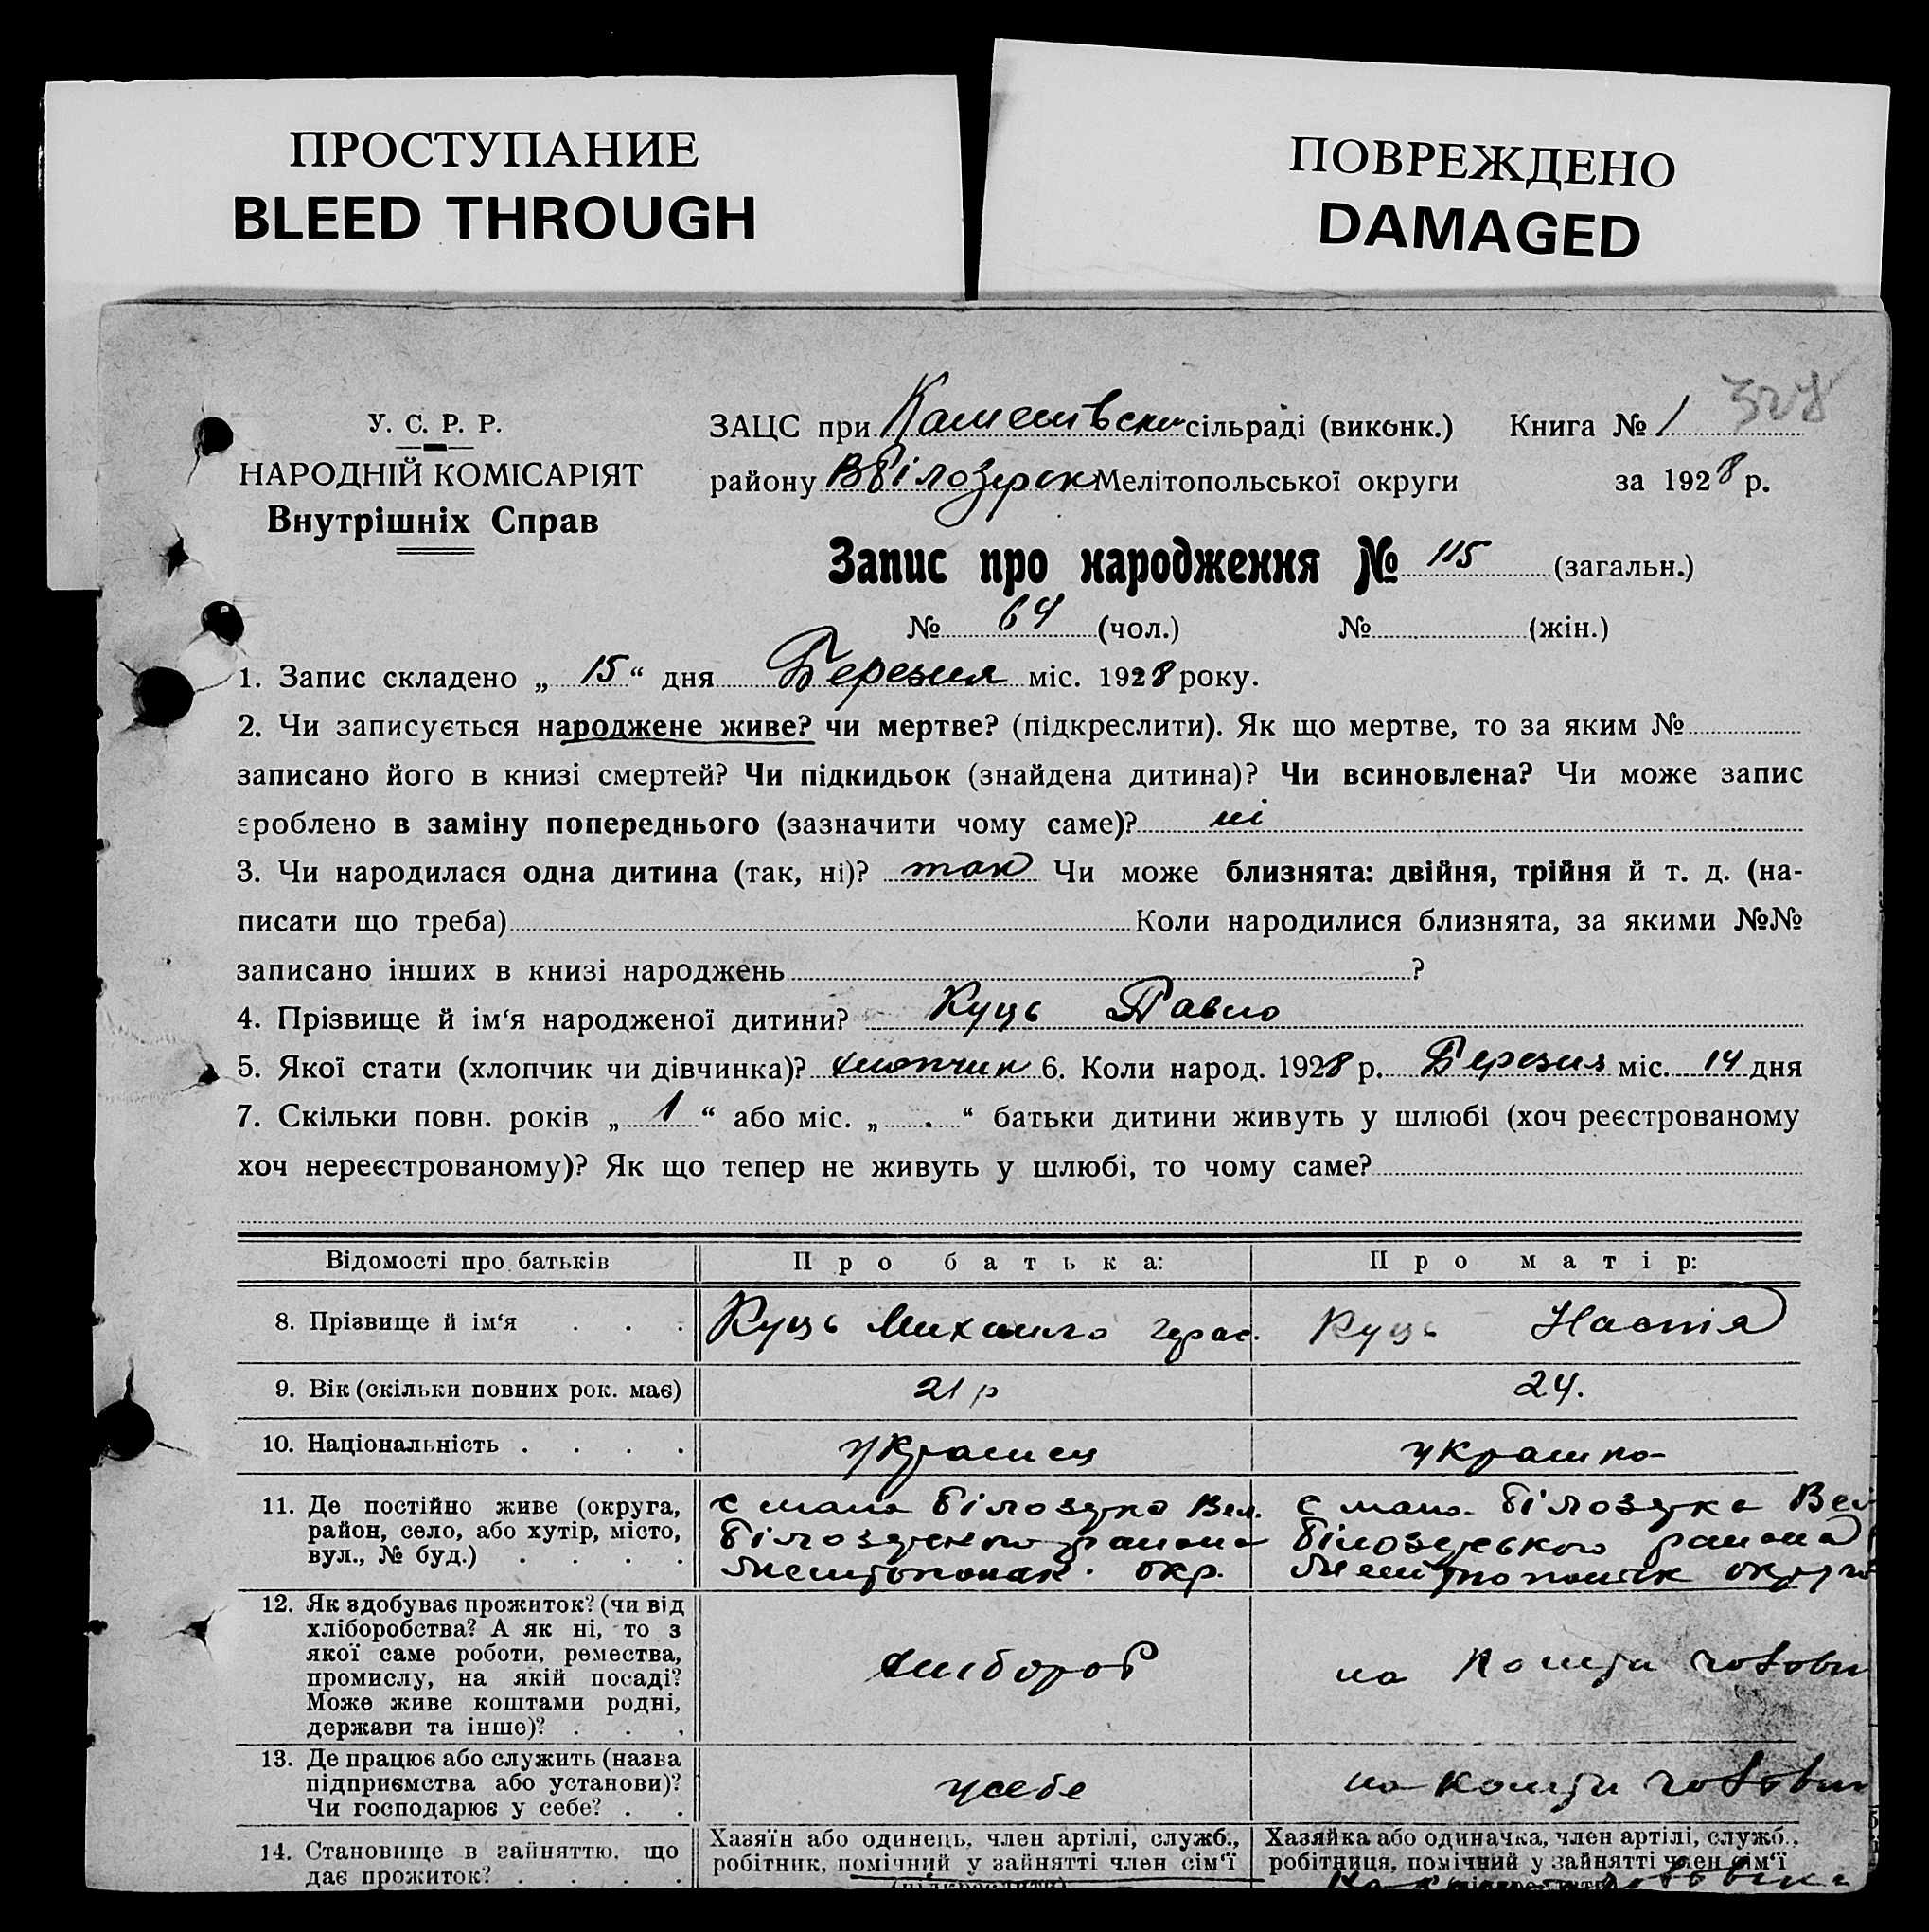 ПРОСТУПАНИЕ
BLEED THROUGH
ПОВРЕЖДЕНО
DAMAGED
328
У. С. Р. Р.
НАРОДНІЙ КОМІСАРІЯТ
Внутрішніх Справ
ЗАЦС при сільраді (виконк.) Книга № 1
району В Білозерск Мелітопольської округи за 1928 р.
Запис про народження № 115 (загальн.)
№ 64 (чол.) № (жін.)
1. Запис складено „ 15 “ дня Березня міс. 1928 року.
2. Чи записується народжене живе? чи мертве? (підкреслити). Як що мертве, то за яким №
записано його в книзі смертей? Чи підкидьок (знайдена дитина)? Чи всиновлена? Чи може запис
зроблено в заміну попереднього (зазначити чому саме)? ні
3. Чи народилася одна дитина (так, ні)? так Чи може близнята: двійня, трійня й т. д. (на-
писати що треба) Коли народилися близнята, за якими №№
записано інших в книзі народжень ?
4. Прізвище й ім‘я народженої дитини? Куць Павло
5. Якої стати (хлопчик чи дівчинка)? хлопчик 6. Коли народ. 1928 р. Березня міс. 14 дня
7. Скільки повн. років „ 1 “ або міс. „ . “ батьки дитини живуть у шлюбі (хоч реєстрованому
хоч нереєстрованому)? Як що тепер не живуть у шлюбі, то чому саме?
Відомості про батьків Про батька: Про матір:
8. Прізвище й ім‘я . . . Куць Михайло Герас. Куць Настя
9. Вік (скільки повних рок. має) 21 р 24.
10. Національність . . . . Українец українка
11. Де постійно живе (округа, район, село, або хутір, місто, вул., № буд.) . . . .
с мала Білозерка Вел.
Білозерского района
Мелітопольск. окр.
с мала Білозерка Вел
Білозерського района
Мелітопольск округи
12. Як здобуває прожиток? (чи від хліборобства? А як ні, то з якої саме роботи, ремества, промислу, на якій посаді? Може живе коштами родні, держави та інше)? . . .
хлібороб
на кошти чоловіка
13. Де працює або служить (назва підприємства або установи)? Чи господарює у себе? . .
у себе
на кошти чоловіка
14. Становище в зайняттю, що дає прожиток? . . . .
Хазяїн або одинець, член артілі, служб.,
робітник, помічний у зайнятті член сім‘ї
(підкреслити)
Хазяйка або одиначка, член артілі, служб.,
робітниця, помічний у зайнятті член сім‘ї
На кошти чоловіка